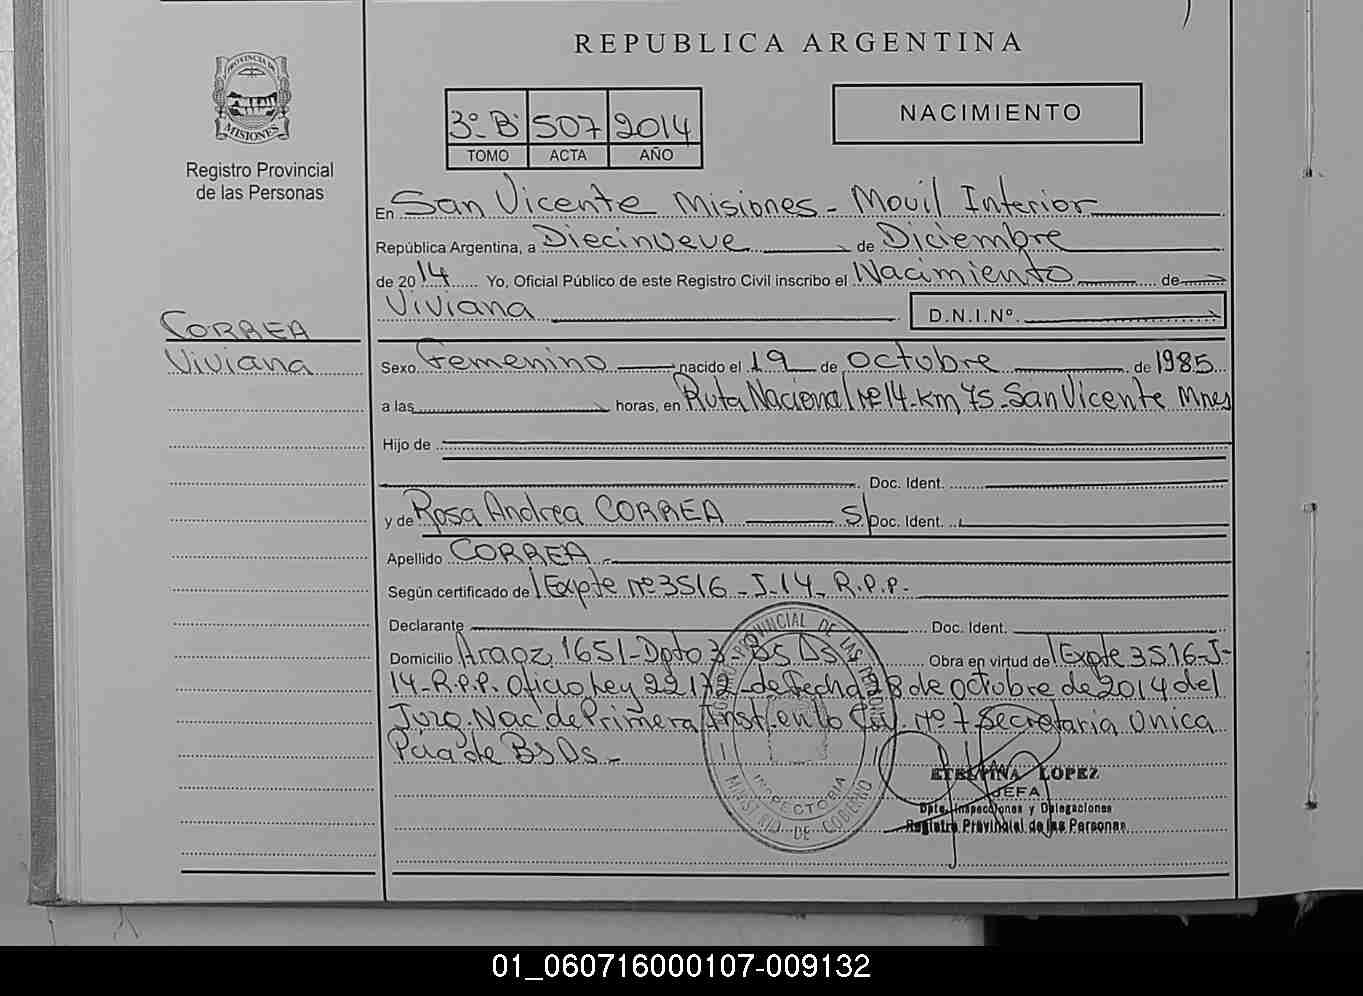 REPUBLICA ARGENTINA
PROVINCIA DE
MISIONES
Registro Provincial
de las Personas
3º B 507 2014
TOMO ACTA AÑO
NACIMIENTO
En San Vicente Misiones - Movil Interior
República Argentina, a Diecinueve de Diciembre
de 2014 Yo, Oficial Público de este Registro Civil inscribo el Nacimiento de
Viviana D.N.I.Nº.
CORREA
Viviana
Sexo Femenino nacido el 19 de octubre de 1985
a las horas, en Ruta Nacional Nº 14 - km 75 - San Vicente Mnes
Hijo de
Doc. Ident.
y de Rosa Andrea CORREA S/ Doc. Ident.
Apellido CORREA
Según certificado de Expte Nº 3516 - J - 14 - R.P.P.
Declarante Doc. Ident.
Domicilio Araoz 1651 - Dpto 3 - Bs As Obra en virtud de Expte 3516 - J -
14 - R.P.P. Oficio Ley 22172 - de fecha 28 de octubre de 2014 del
Juzg. Nac. de Primera Inst. en lo Civ. Nº 7 Secretaria Unica
de Bs As -
REGISTRO PROVINCIAL DE LAS PERSONAS
INSPECTORIA
MINISTERIO DE GOBIERNO
ETELVINA LOPEZ
JEFA
Dpto. Inspecciones y Delegaciones
Registro Provincial de las Personas
01_060716000107-009132